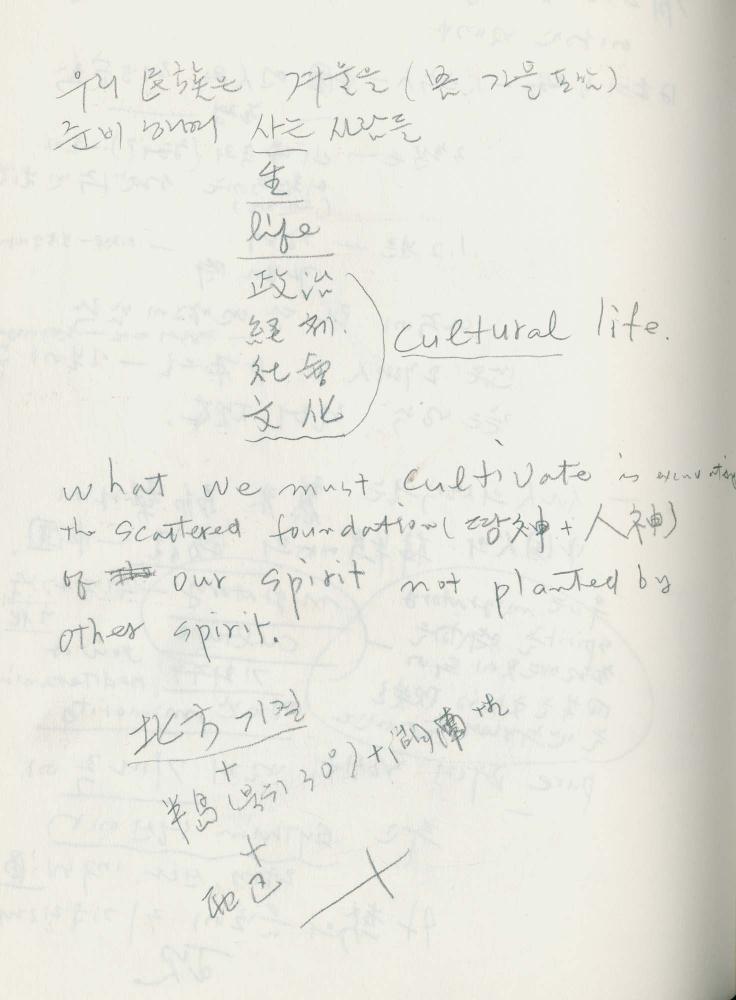 우리 民族은 겨울을 (봄 가물 포함)
준비하며 사는 사람들
生
life
政治
経済.
社會
文化
cultural life.
what we must cultivate is
the scattered foundation (땅神 + 人神)
of our spirit not planted by
other spirit.
北方 기질
+
半島 (북위 30°) +
+